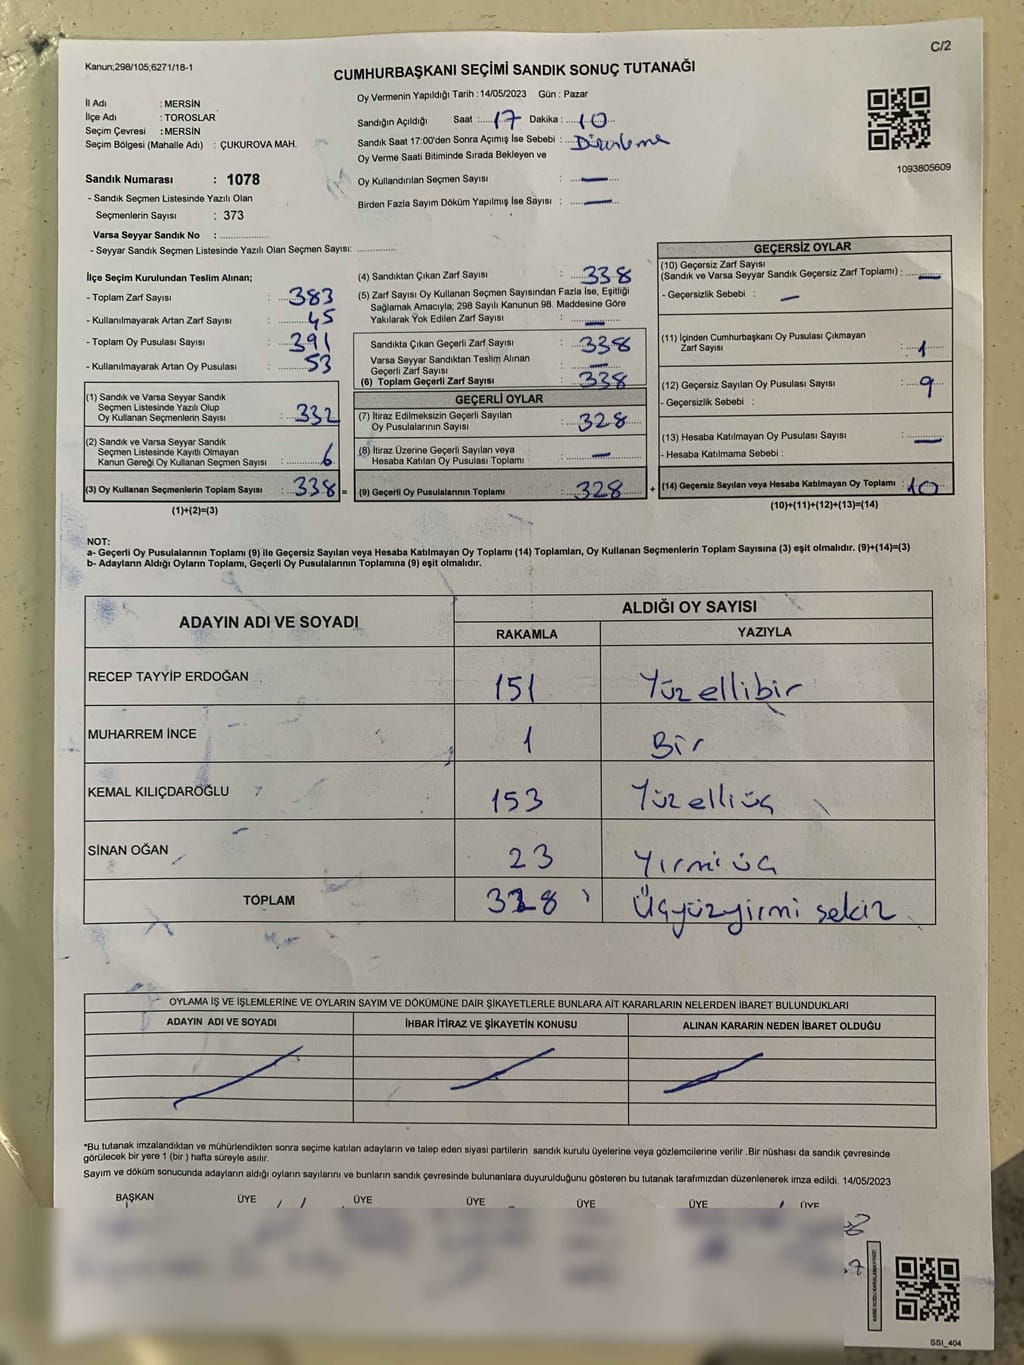 C/2
Kanun;298/105;6271/18-1
CUMHURBAŞKANI SEÇİMİ SANDIK SONUÇ TUTANAĞI
İl Adı : MERSİN
İlçe Adı : TOROSLAR
Seçim Çevresi : MERSİN
Seçim Bölgesi (Mahalle Adı) : ÇUKUROVA MAH.
Sandık Numarası : 1078
- Sandık Seçmen Listesinde Yazılı Olan
Seçmenlerin Sayısı : 373
Varsa Seyyar Sandık No : ..................
- Seyyar Sandık Seçmen Listesinde Yazılı Olan Seçmen Sayısı: ..............
Oy Vermenin Yapıldığı Tarih :14/05/2023 Gün : Pazar
Sandığın Açıldığı Saat :....17 Dakika :....10....
Sandık Saat 17:00'den Sonra Açımış İse Sebebi :
Oy Verme Saati Bitiminde Sırada Bekleyen ve
Oy Kullandırılan Seçmen Sayısı : —
Birden Fazla Sayım Döküm Yapılmış İse Sayısı : —
1093805609
İlçe Seçim Kurulundan Teslim Alınan;
- Toplam Zarf Sayısı : 383
- Kullanılmayarak Artan Zarf Sayısı : 45
- Toplam Oy Pusulası Sayısı : 391
- Kullanılmayarak Artan Oy Pusulası : 53
(1) Sandık ve Varsa Seyyar Sandık
Seçmen Listesinde Yazılı Olup
Oy Kullanan Seçmenlerin Sayısı : 332
(2) Sandık ve Varsa Seyyar Sandık
Seçmen Listesinde Kayıtlı Olmayan
Kanun Gereği Oy Kullanan Seçmen Sayısı : 6
(3) Oy Kullanan Seçmenlerin Toplam Sayısı : 338 =
(1)+(2)=(3)
(4) Sandıktan Çıkan Zarf Sayısı : 338
(5) Zarf Sayısı Oy Kullanan Seçmen Sayısından Fazla İse, Eşitliği
Sağlamak Amacıyla; 298 Sayılı Kanunun 98. Maddesine Göre
Yakılarak Yok Edilen Zarf Sayısı : —
Sandıkta Çıkan Geçerli Zarf Sayısı : 338
Varsa Seyyar Sandıktan Teslim Alınan
Geçerli Zarf Sayısı : —
(6) Toplam Geçerli Zarf Sayısı : 338
GEÇERLİ OYLAR
(7) İtiraz Edilmeksizin Geçerli Sayılan
Oy Pusulalarının Sayısı : 328
(8) İtiraz Üzerine Geçerli Sayılan veya
Hesaba Katılan Oy Pusulası Toplamı : —
(9) Geçerli Oy Pusulalarının Toplamı : 328 +
GEÇERSİZ OYLAR
(10) Geçersiz Zarf Sayısı
(Sandık ve Varsa Seyyar Sandık Geçersiz Zarf Toplamı) : —
- Geçersizlik Sebebi : —
(11) İçinden Cumhurbaşkanı Oy Pusulası Çıkmayan
Zarf Sayısı : 1
(12) Geçersiz Sayılan Oy Pusulası Sayısı : 9
- Geçersizlik Sebebi :
(13) Hesaba Katılmayan Oy Pusulası Sayısı : —
- Hesaba Katılmama Sebebi :
(14) Geçersiz Sayılan veya Hesaba Katılmayan Oy Toplamı : 10
(10)+(11)+(12)+(13)=(14)
NOT:
a- Geçerli Oy Pusulalarının Toplamı (9) ile Geçersiz Sayılan veya Hesaba Katılmayan Oy Toplamı (14) Toplamları, Oy Kullanan Seçmenlerin Toplam Sayısına (3) eşit olmalıdır. (9)+(14)=(3)
b- Adayların Aldığı Oyların Toplamı, Geçerli Oy Pusulalarının Toplamına (9) eşit olmalıdır.
ADAYIN ADI VE SOYADI
ALDIĞI OY SAYISI
RAKAMLA YAZIYLA
RECEP TAYYİP ERDOĞAN 151 Yüzellibir
MUHARREM İNCE 1 Bir
KEMAL KILIÇDAROĞLU 153 Yüzelliüç
SİNAN OĞAN 23 Yirmiüç
TOPLAM 328 Üçyüzyirmi sekiz
OYLAMA İŞ VE İŞLEMLERİNE VE OYLARIN SAYIM VE DÖKÜMÜNE DAİR ŞİKAYETLERLE BUNLARA AİT KARARLARIN NELERDEN İBARET BULUNDUKLARI
ADAYIN ADI VE SOYADI İHBAR İTİRAZ VE ŞİKAYETİN KONUSU ALINAN KARARIN NEDEN İBARET OLDUĞU
*Bu tutanak imzalandıktan ve mühürlendikten sonra seçime katılan adayların ve talep eden siyasi partilerin sandık kurulu üyelerine veya gözlemcilerine verilir .Bir nüshası da sandık çevresinde
görülecek bir yere 1 (bir ) hafta süreyle asılır.
Sayım ve döküm sonucunda adayların aldığı oyların sayılarını ve bunların sandık çevresinde bulunanlara duyurulduğunu gösteren bu tutanak tarafımızdan düzenlenerek imza edildi. 14/05/2023
BAŞKAN ÜYE ÜYE ÜYE ÜYE ÜYE ÜYE
SSI_404